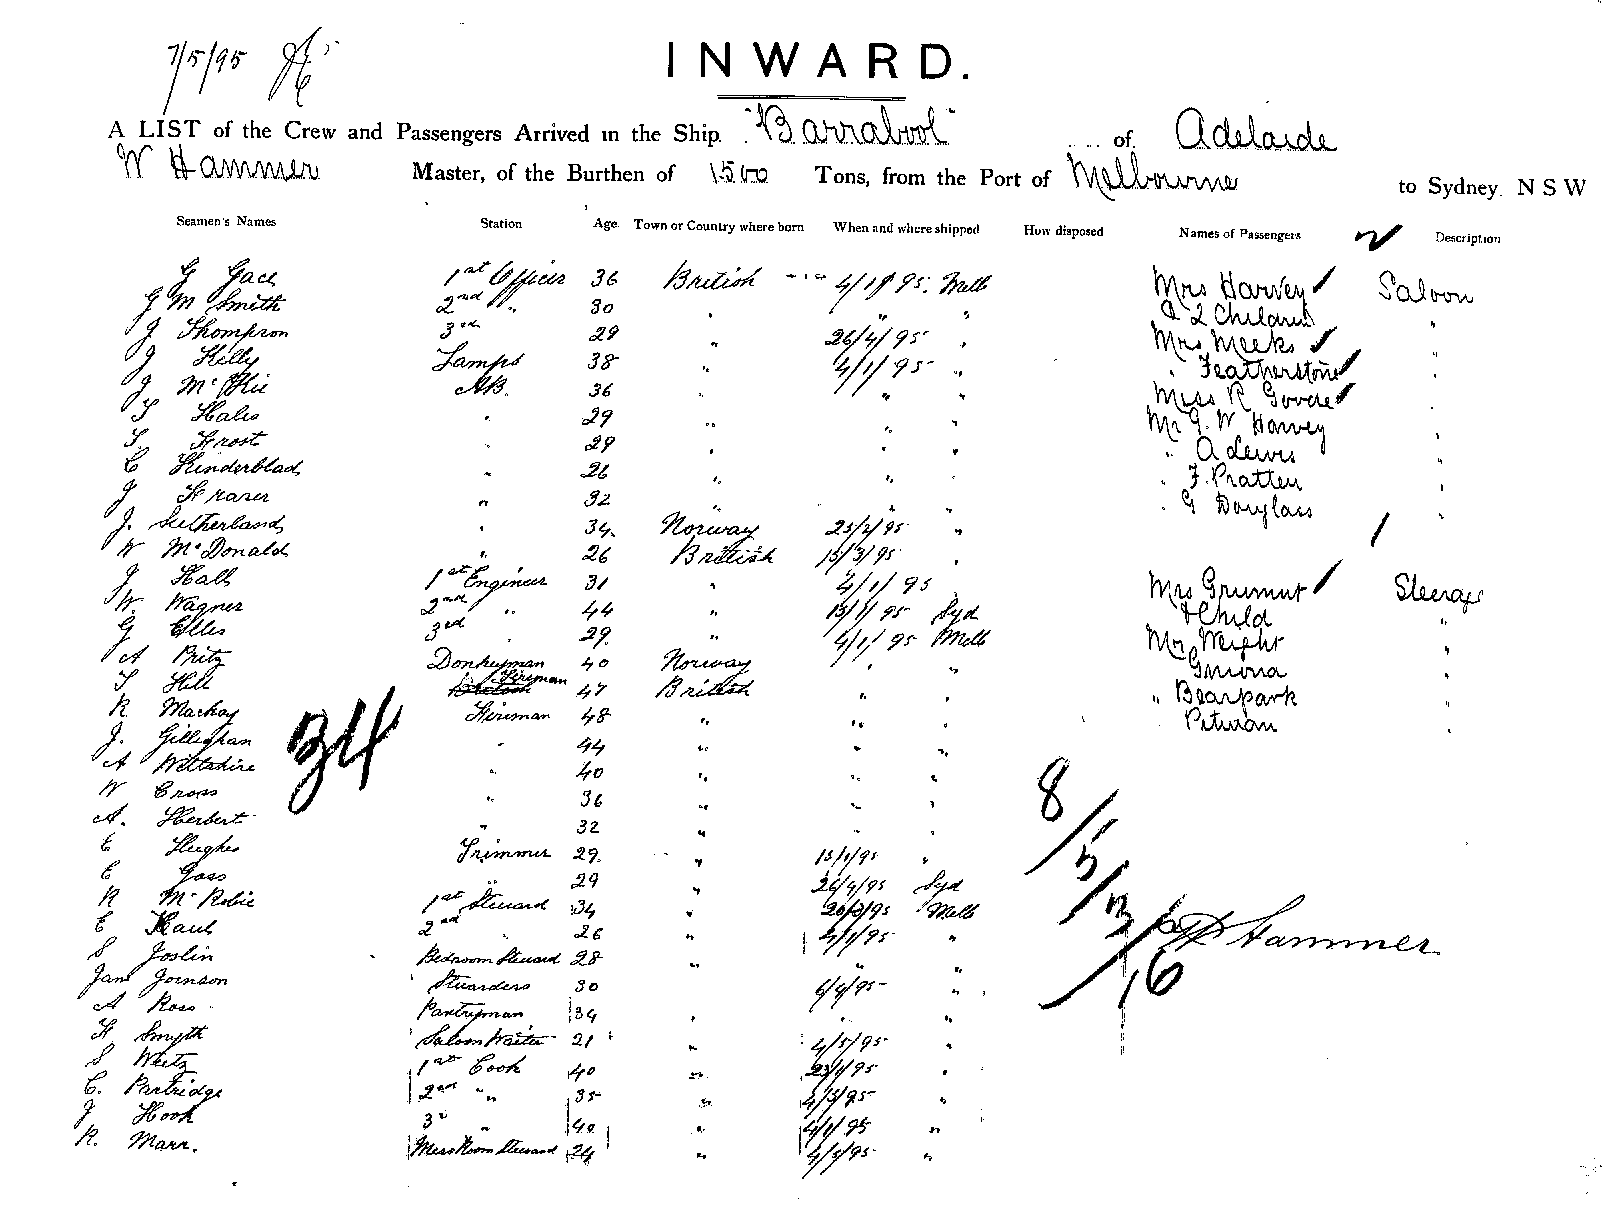 7/5/95
INWARD.
A LIST of the Crew and Passengers Arrived in the Ship. "Barrabool" of. Adelaide
W Hammer Master, of the Burthen of 1500 Tons, from the Port of Melbourne to Sydney. N S W
Seamen's Names Station Age. Town or Country where born When and where shipped How disposed Names of Passengers Description
G 1st Officer 36 British 4/1/95. Melb Mrs Harvey Saloon
G M Smith 2nd " 30 " " " & 2 Children "
J Thompson 3rd 29 " 26/4/95 " Mrs Meeks "
J Kelly Lamps 38 4/1/95 " " Featherstone "
J AB. 36 " " " Miss R "
T Hales " 29 " " " Mr G. W Harvey
T. Frost " 29 " " " " A Lewis "
C Kinderblad " 26 " " " " F. Pratten "
J Fraser " 32 " " " " G Douglass "
J. Sutherland " 34. Norway 25/2/95 "
W McDonald " 26 British 15/3/95 "
J Hall 1st Engineer 31 " 4/1/95 Mrs Grumut Steerage
W. Wagner 2nd " 44 " 13/1/95 Syd & Child "
G Elles 3rd " 29. " 4/1/95 Melb Mr Weight "
A Britz Donkeyman 40 Norway " " "
T Hill Fireman 47 British " " " Bearpark "
R Mackay Fireman 48 " " " "
J. Gilleghan " 44 " " "
34
A Wiltshire " 40 " " "
W Cross " 36 " " "
A. Herbert " 32 " " "
E Hughes Trimmer 29. " 15/1/95 "
E Goss " 29 " 26/4/95 Syd
R McRobie 1st Steward 34 " Melb
E 2nd " 26 " 4/1/95 "
S Joslin Bedroom Steward 28 " " "
Jane Johnson Stuardess 30 6/4/95 "
A Ross Pantryman 34 " " "
H Smyth Saloon Waiter 21 " 4/5/95 "
S Weitz 1st Cook 40 " "
C. Partridge 2nd " 35 " 4/5/95 "
J Hook 3rd " 40 " 4/1/95 "
R. Marr. Mess Room Steward 24 " 4/5/95 "
8/5/3/6
W Hammer
16